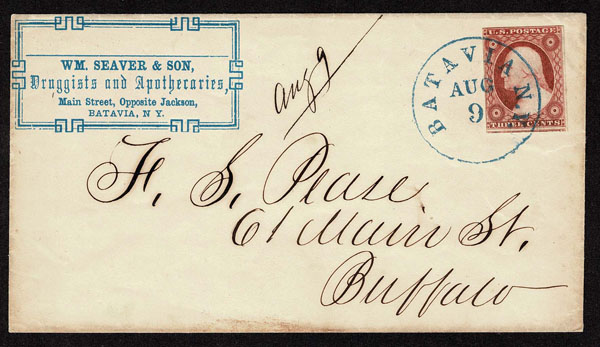 WM. SEAVER & SON,
Druggists and Apothecaries,
Main Street, Opposite Jackson,
BATAVIA, N. Y.
Aug 9
BATAVIA N.Y.
AUG
9
U.S. POSTAGE
THREE CENTS
F. S. Pease
61 Main St.
Buffalo